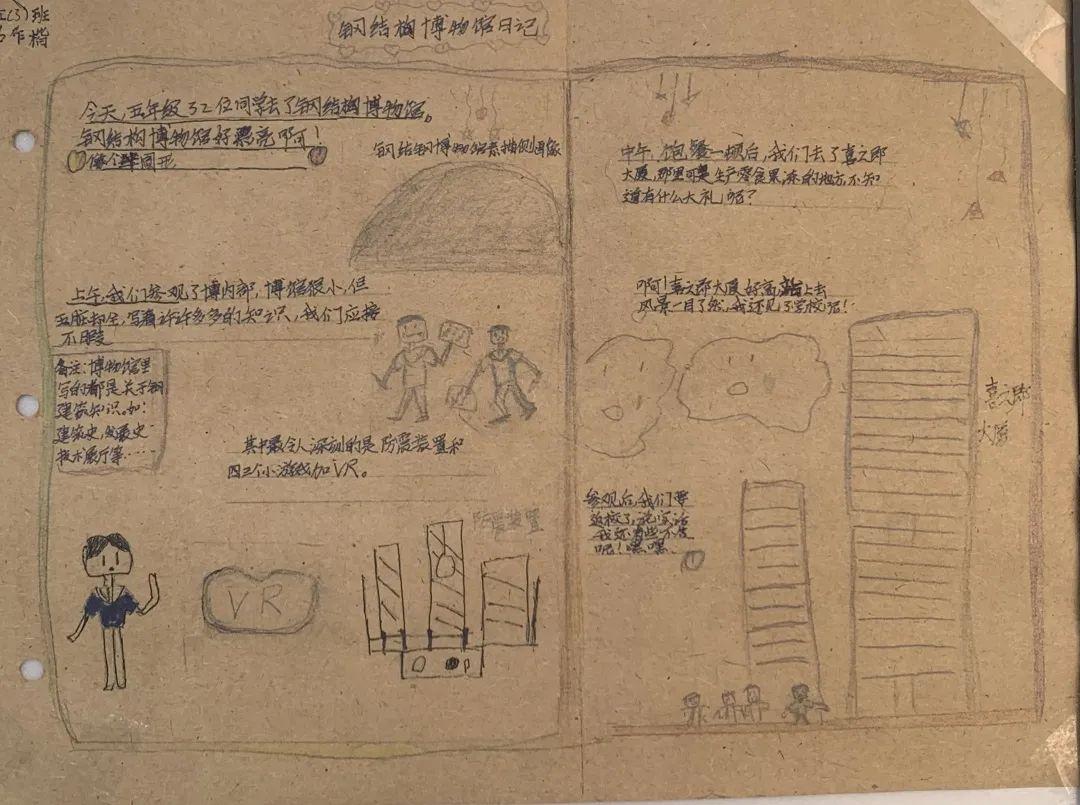 五(3)班
钢结构博物馆日记
今天,五年级32位同学去了钢结构博物馆。
钢结构博物馆好漂亮啊!
像个半圆形
上午,我们参观了博内部,博馆很小,但
五脏却全,写着许许多多的知识,我们应接
不暇
备注:博物馆里
写的都是关于钢
建筑知识。如:
建筑史,发展史
技术展厅等……
其中最令人深刻的是防震装置和
四三个小游戏加VR。
防震装置
VR
中午,饱餐一顿后,我们去了喜之郎
大厦,那里可是生产零食果冻的地方,不知
道有什么大礼呢?
啊!喜之郎大厦好高站上去
风景一目了然,我还见了学校呢!
喜之郎
大厦
参观后,我们要
返校了,说实话
我还有些不舍
呢!嘿嘿